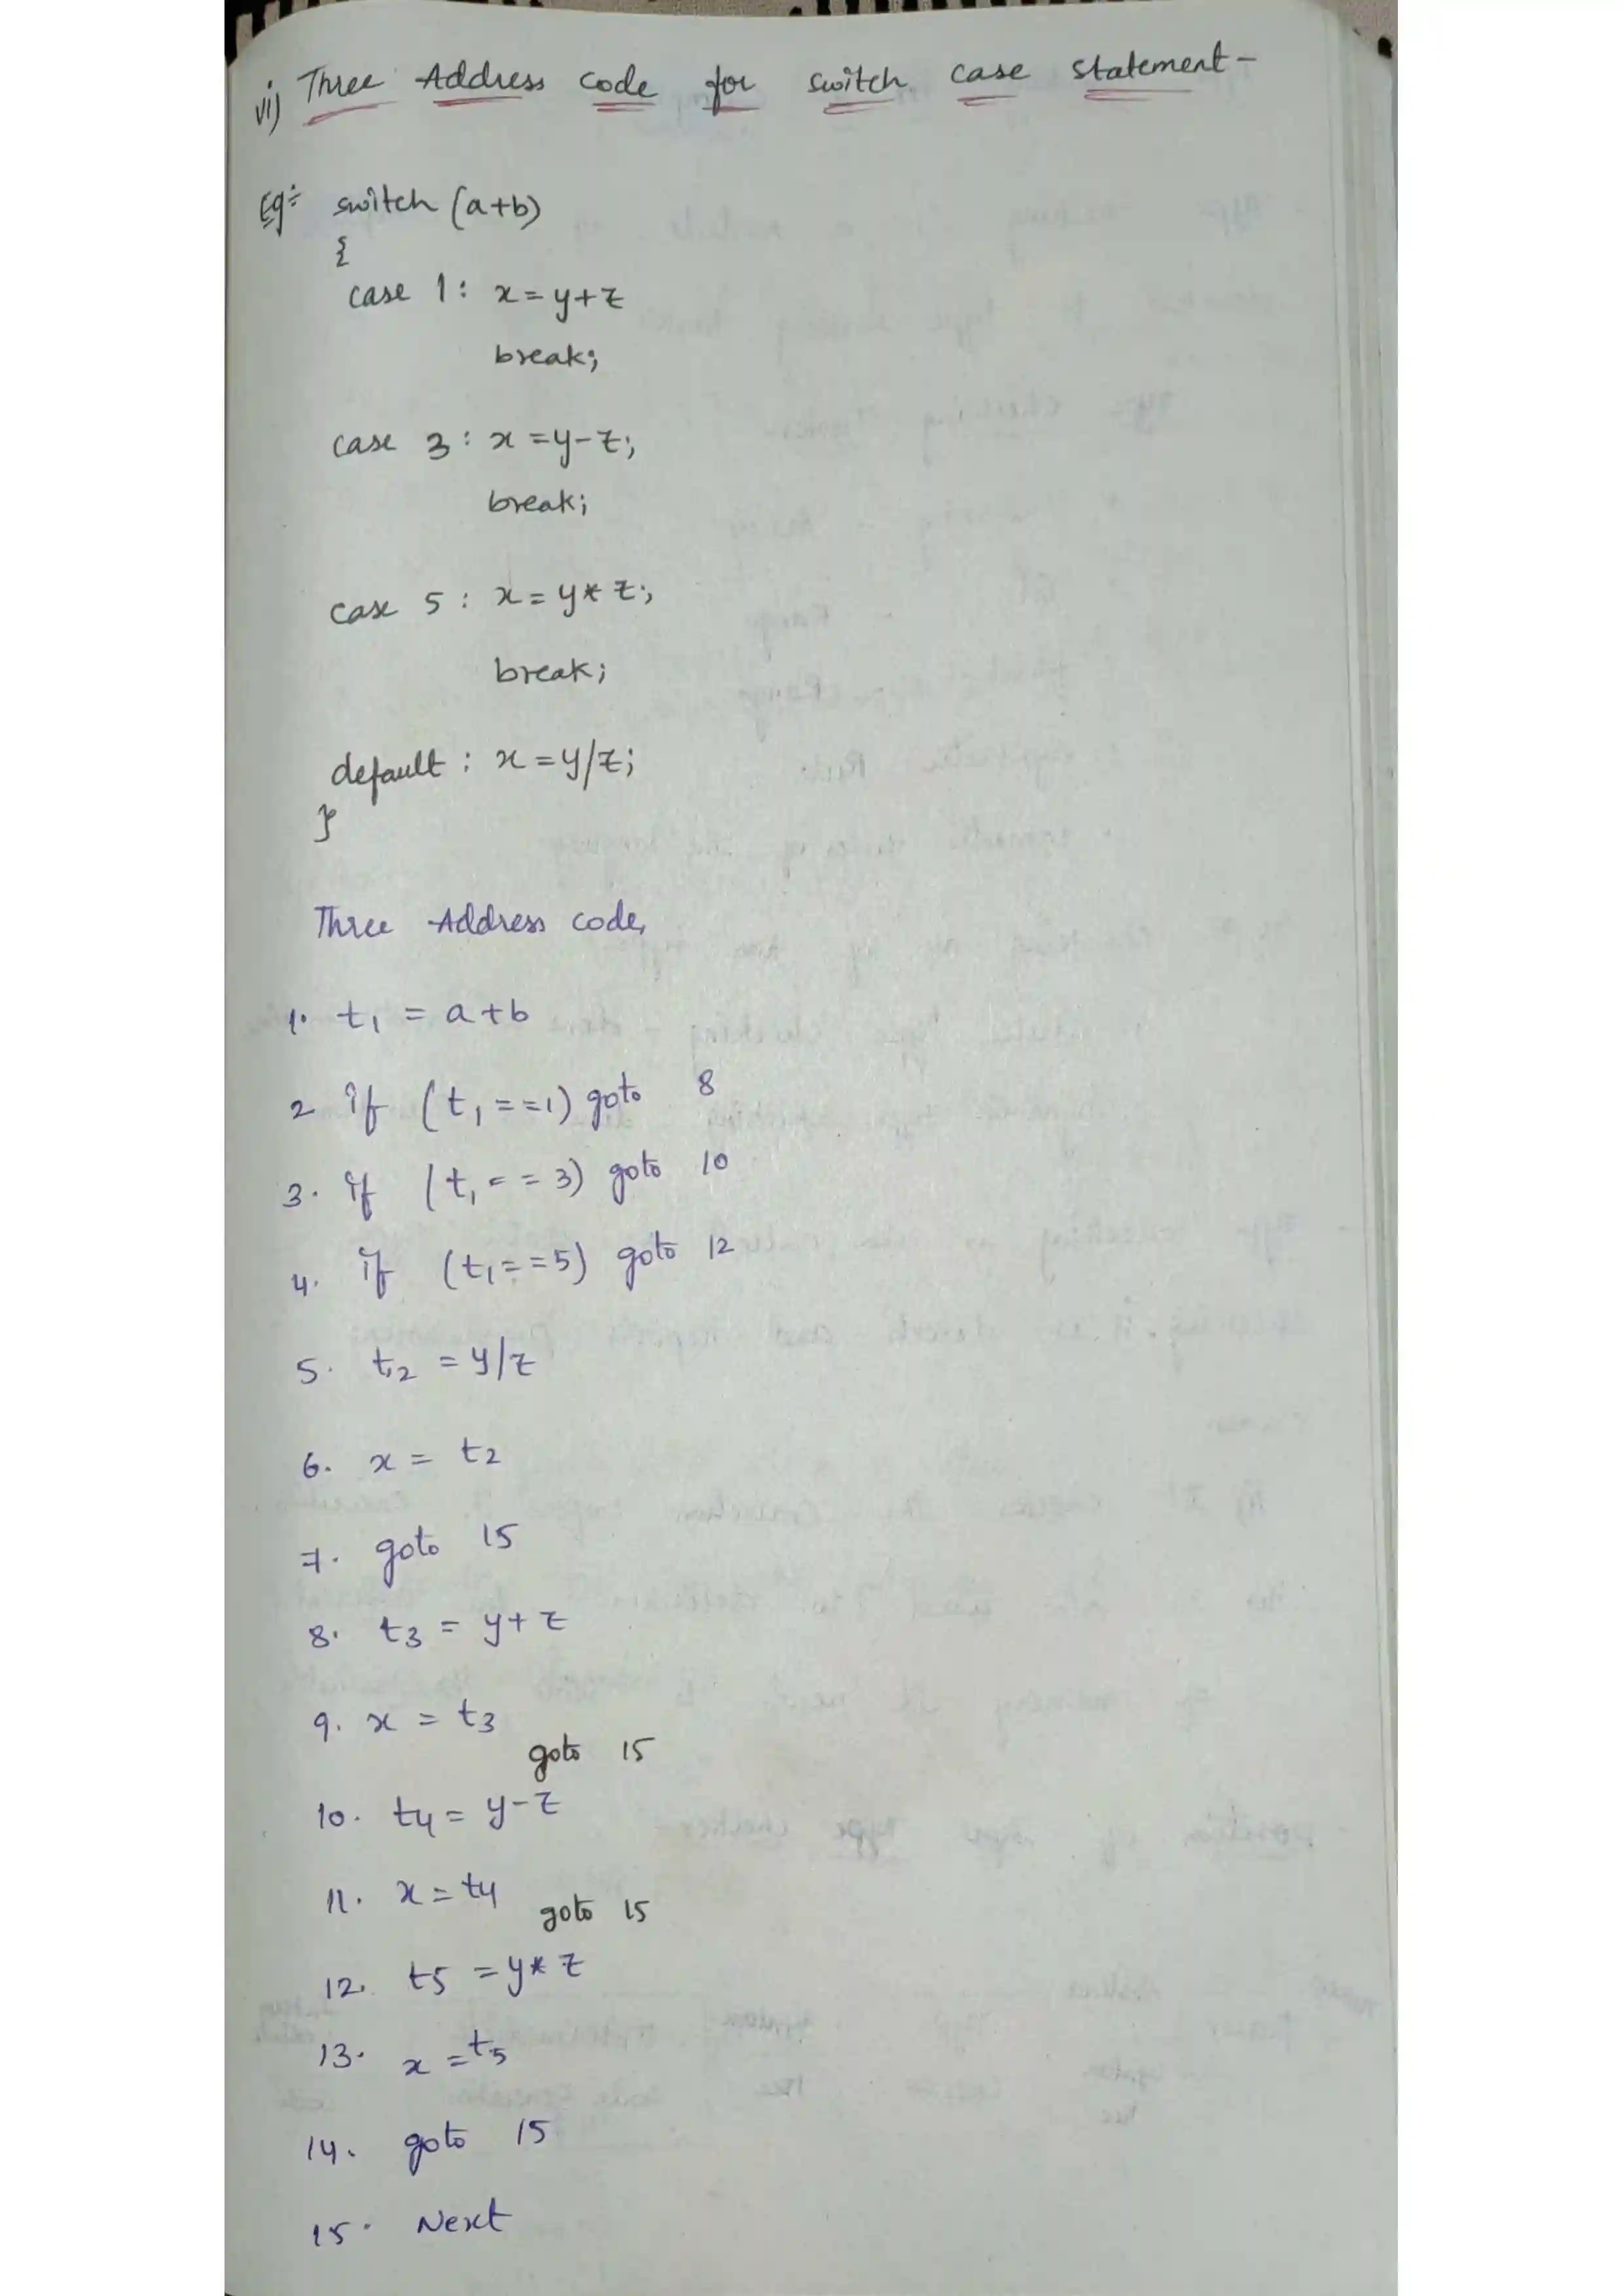 vi) Three Address code for switch case statement -
Eg:- switch (a+b)
{
case 1: x = y+z
break;
case 3: x = y-z;
break;
case 5: x = y* z;
break;
default: x = y/z;
}
Three Address code,
1. t1 = a+b
2 if (t1 ==1) goto 8
3. if (t1 == 3) goto 10
4. if (t1==5) goto 12
5. t2 = y/z
6. x = t2
7. goto 15
8. t3 = y+z
9. x = t3
goto 15
10. t4 = y-z
11. x = t4
goto 15
12. t5 = y* z
13. x = t5
14. goto 15
15. Next